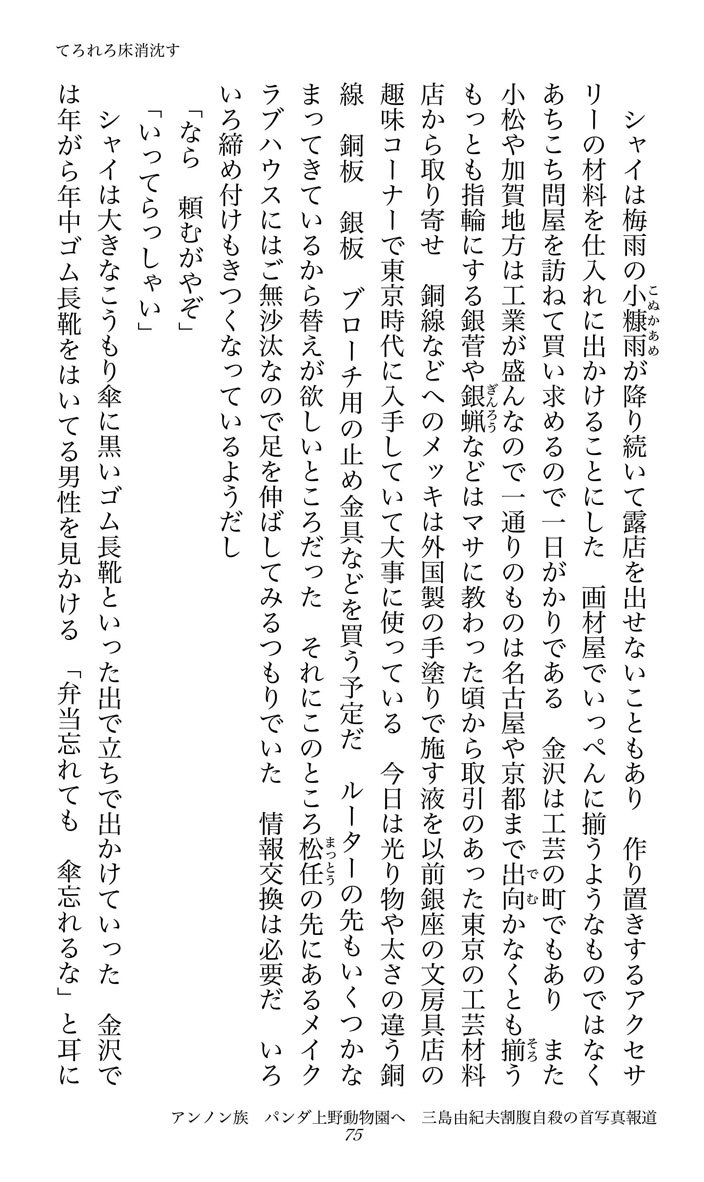 てろれろ床消沈す
　シャイは梅雨の小糠雨が降り続いて露店を出せないこともあり　作り置きするアクセサ
リーの材料を仕入れに出かけることにした　画材屋でいっぺんに揃うようなものではなく
あちこち問屋を訪ねて買い求めるので一日がかりである　金沢は工芸の町でもあり　また
小松や加賀地方は工業が盛んなので一通りのものは名古屋や京都まで出向かなくとも揃う
もっとも指輪にする銀菅や銀蝋などはマサに教わった頃から取引のあった東京の工芸材料
店から取り寄せ　銅線などへのメッキは外国製の手塗りで施す液を以前銀座の文房具店の
趣味コーナーで東京時代に入手していて大事に使っている　今日は光り物や太さの違う銅
線　銅板　銀板　ブローチ用の止め金具などを買う予定だ　ルーターの先もいくつかな
まってきているから替えが欲しいところだった　それにこのところ松任の先にあるメイク
ラブハウスにはご無沙汰なので足を伸ばしてみるつもりでいた　情報交換は必要だ　いろ
いろ締め付けもきつくなっているようだし
「なら　頼むがやぞ」
「いってらっしゃい」
　シャイは大きなこうもり傘に黒いゴム長靴といった出で立ちで出かけていった　金沢で
は年がら年中ゴム長靴をはいてる男性を見かける　「弁当忘れても　傘忘れるな」と耳に
こぬかあめ
でむ
そろ
ぎんろう
まっとう
アンノン族　パンダ上野動物園へ　三島由紀夫割腹自殺の首写真報道
75